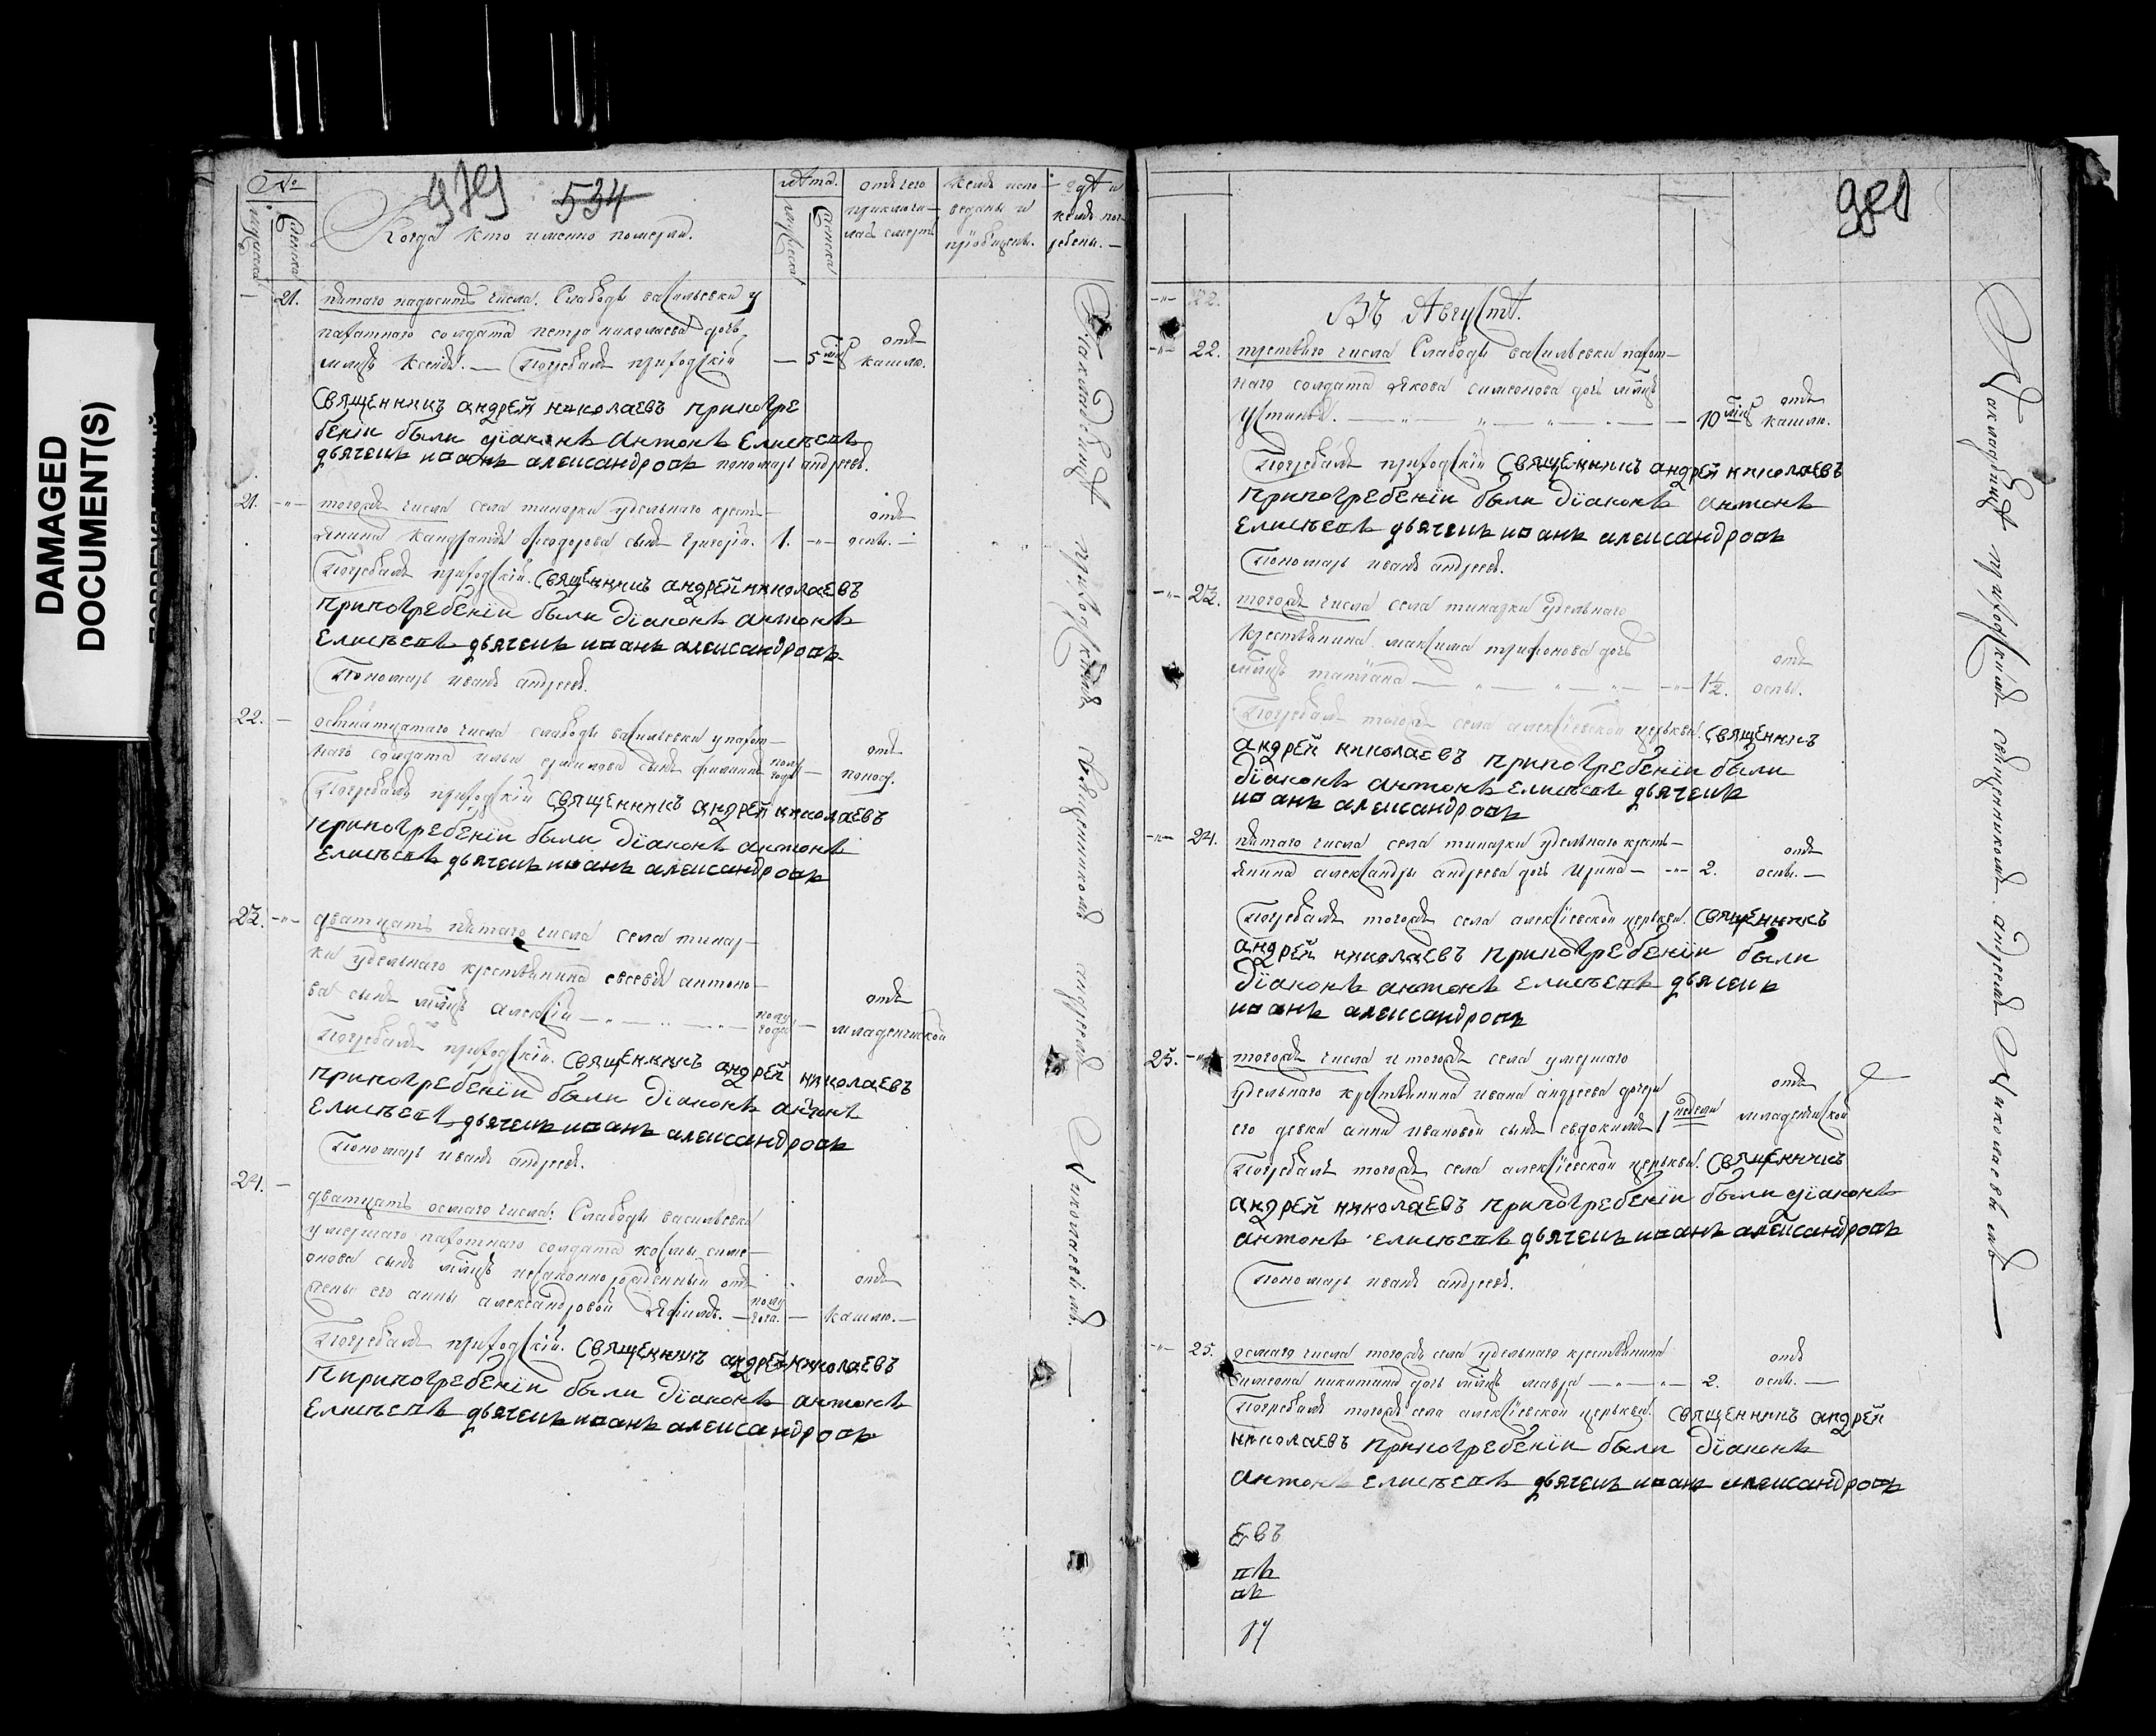 DAMAGED
DOCUMENT(S)
№
979 534
мужеска
женска
Когда кто именно померли.
лѣта.
мужеска
женска
отъ чего
приключи-
лась смерть
кемъ испо-
веданы и
приобщены.
гдѣ и
кемъ пог-
ребены.
21. пятаго надесить числа. Слабоды васильевки у
пахатнаго солдата петра николаева дочь
младъ ксенія. — Погребалъ приходскій — 5 отъ кашлю.
Священникъ андрей николаевъ припогре
беніи были діаконъ Антонъ Елисѣевъ
дьячекъ иоанъ александровъ пономарь андреевъ.
21. тогожъ числа села тинарки удельнаго кресть-
янина кандратья феодорова сынъ григорій. 1. отъ оспы.
Погребалъ приходскій. Священникъ андрей николаевъ
припогребеніи были діаконъ антонъ
Елисѣевъ дьячекъ иоанъ александровъ
Пономарь иванъ андреевъ.
22. осмнатцатаго числа слабоды васильевки у пахат-
наго солдата ильи сынъ филипъ полу года — отъ поносу.
Погребалъ приходскій Священникъ андрей николаевъ
припогребеніи были діаконъ антонъ
Елисѣевъ дьячекъ иоанъ александровъ
23. дватцать пятаго числа села тинар-
ки удельнаго крестьянина евсевія антоно-
ва сынъ младъ алексій полу года — отъ младенческой
Погребалъ приходскій. Священникъ андрей николаевъ
припогребеніи были діаконъ антонъ
Елисѣевъ дьячекъ иоанъ александровъ
Пономарь иванъ андреевъ.
24. дватцать осмаго числа: Слабоды васильевки
умершаго пахотнаго солдата космы симе-
онова сынъ младъ незаконнорожденный отъ
жены его анны александровой полу года. — отъ кашлю. —
Погребалъ приходскій. Священникъ андрей николаевъ
припогребеніи были діаконъ антонъ
Елисѣевъ дьячекъ иоанъ александровъ
На кладбищѣ приходскимъ священникомъ андреемъ Николаевымъ.
980
22.
Въ Августѣ.
22. третьяго числа Слабоды васильевки пахот-
наго солдата якова симеонова дочь младъ
Устинья. 10 отъ кашлю.
Погребалъ приходскій Священникъ андрей николаевъ
припогребеніи были діаконъ антонъ
Елисѣевъ дьячекъ иоанъ александровъ
Пономарь иванъ андреевъ.
23. тогожъ числа села тинарки удельнаго
крестьянина максима трифонова дочь
младъ татіана 1½. отъ оспы.
Погребалъ тогожъ села алексіевской церькви. Священникъ
андрей николаевъ припогребеніи были
діаконъ антонъ Елисѣевъ дьячекъ
иоанъ александровъ
24. пятаго числа села тинарки удельнаго кресть-
янина александры андреева дочь Ирина 2. отъ оспы. —
Погребалъ тогожъ села алексіевской церькви. Священникъ
андрей николаевъ припогребеніи были
діаконъ антонъ Елисѣевъ дьячекъ
иоанъ александровъ
25. тогожъ числа и тогожъ села умершаго
удельнаго крестьянина ивана андреева дочери
его девки анны ивановой сынъ евдокимъ 1 недели отъ младенческой
Погребалъ тогожъ села алексіевской церькви. Священникъ
андрей николаевъ припогребеніи были діаконъ
антонъ Елисѣевъ дьячекъ иоанъ александровъ
Пономарь иванъ андреевъ.
25. осмаго числа тогожъ села удельнаго крестьянина
симеона никитина дочь младъ мавра 2. отъ оспы. —
Погребалъ тогожъ села алексіевской церькви. Священникъ андрей
николаевъ припогребеніи были діаконъ
антонъ Елисѣевъ дьячекъ иоанъ александровъ
Евъ
На кладбищѣ приходскимъ священникомъ андреемъ Николаевымъ